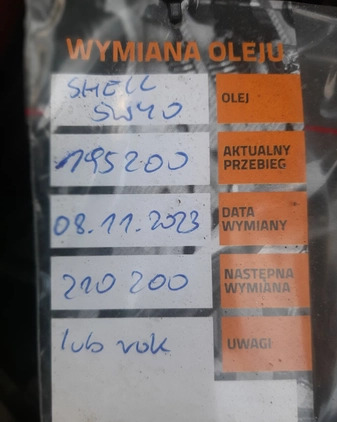 WYMIANA OLEJU
SHELL
5W40
OLEJ
195200
AKTUALNY
PRZEBIEG
08.11.2023
DATA
WYMIANY
210 200
NASTĘPNA
WYMIANA
lub rok
UWAGI